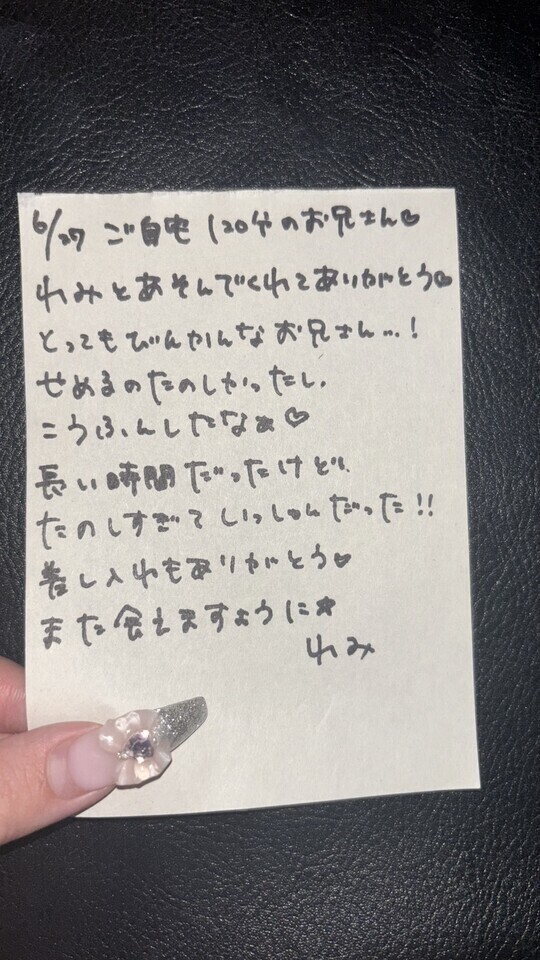 6/27 ご自宅 120分のお兄さん♡
れみとあそんでくれてありがとう♡
とってもびんかんなお兄さん...!
せめるのたのしかったし、
こうふんしたなぁ♡
長い時間だったけど、
たのしすぎていっしゅんだった!!
差し入れもありがとう♡
また会えますように☆
れみ